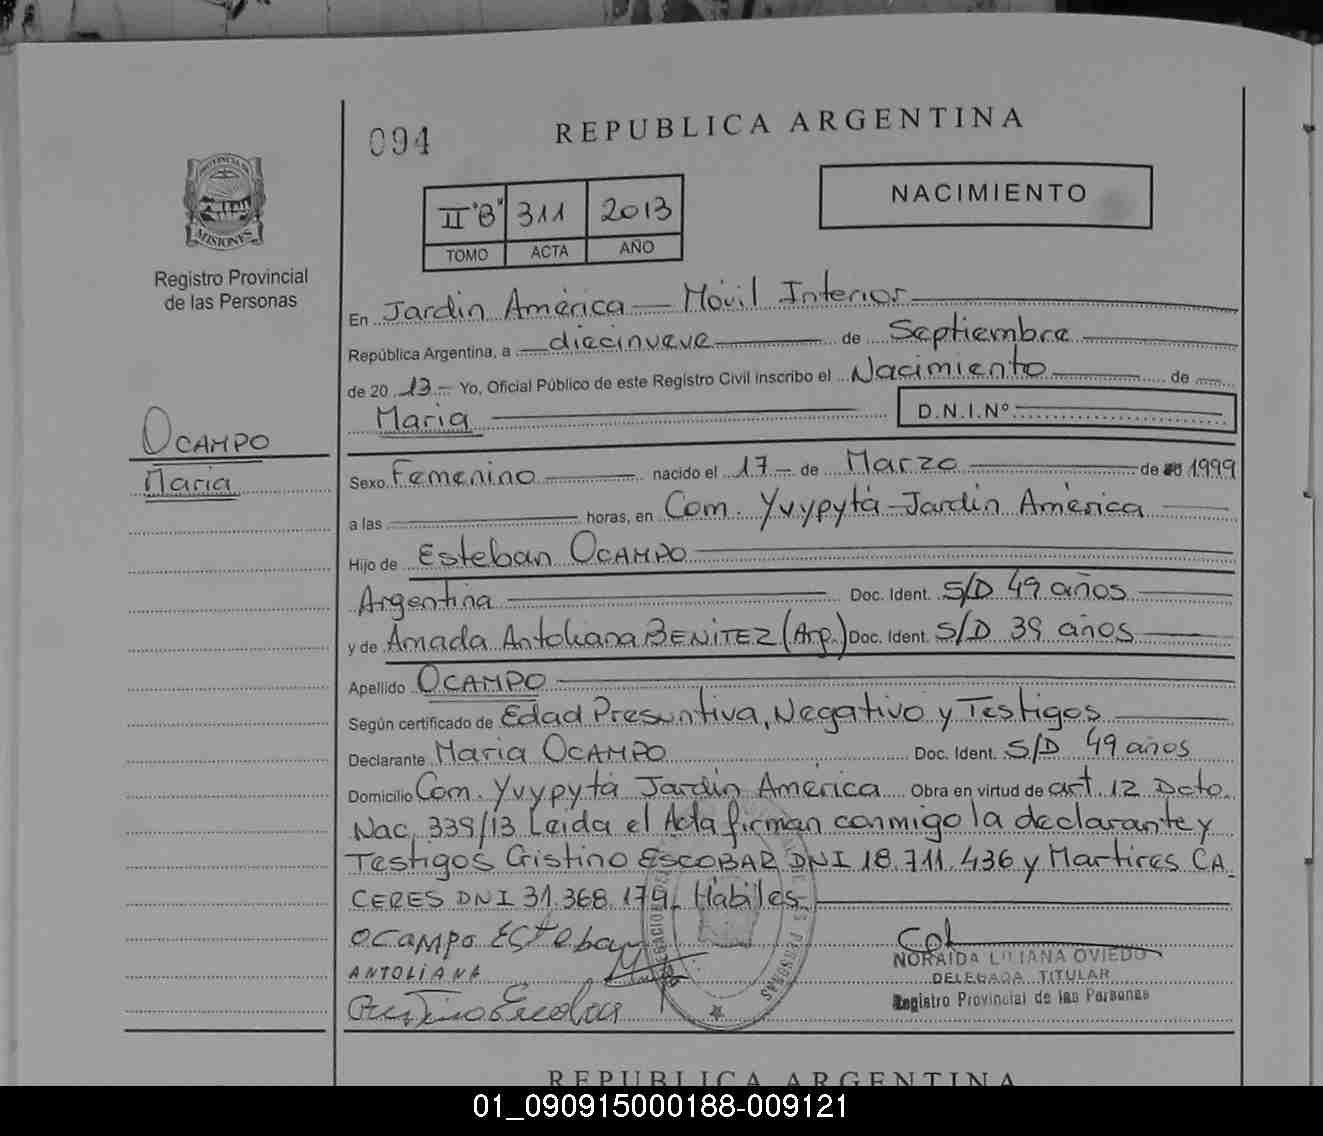 094
REPUBLICA ARGENTINA
PROVINCIA DE
MISIONES
Registro Provincial
de las Personas
II "B" 311 2013
TOMO ACTA AÑO
NACIMIENTO
En Jardin América — Móvil Interior
República Argentina, a diecinueve de Septiembre
de 20 13 Yo, Oficial Público de este Registro Civil inscribo el Nacimiento de
Maria D.N.I.Nº
OCAMPO
Maria
Sexo Femenino nacido el 17 de Marzo de 1999
a las horas, en Com. Yvypytá - Jardin América
Hijo de Esteban OCAMPO
Argentina Doc. Ident. S/D 49 años
y de Amada Antoliana BENITEZ (Arg.) Doc. Ident. S/D 39 años
Apellido OCAMPO
Según certificado de Edad Presuntiva, Negativo y Testigos
Declarante Maria OCAMPO Doc. Ident. S/D 49 años
Domicilio Com. Yvypytá Jardin América Obra en virtud de art. 12 Dcto
Nac. 339/13 Leida el Acta firman conmigo la declarante y
Testigos Cristino ESCOBAR DNI 18.711.436 y Martires CA
CERES DNI 31.368.179. Hábiles.
OCAMPO EsTeban
ANTOLIANA
NORAIDA LILIANA OVIEDO
DELEGADA TITULAR
Registro Provincial de las Personas
REPUBLICA ARGENTINA
01_090915000188-009121